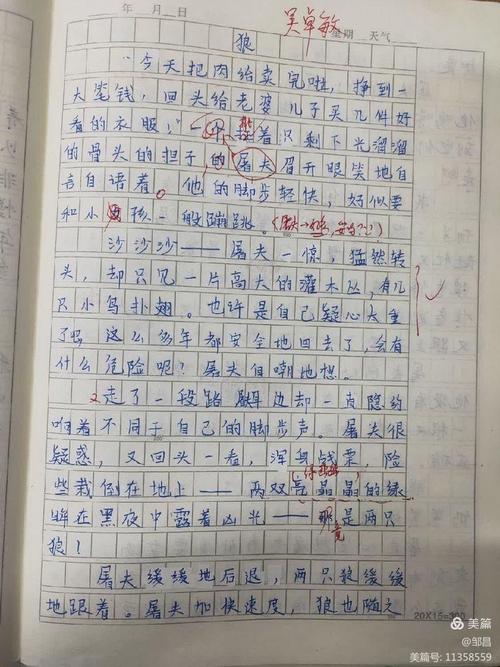 年 月 日 星期 天气
吴卓敏
狼
“今天把肉给卖完啦，挣到一
大笔钱，回头给老婆儿子买几件好
看的衣服，”一 着只剩下光溜溜
的骨头的担子的屠夫眉开眼笑地自
言自语着。他的脚步轻快，好似要
和小孩一般蹦跳。
沙沙沙——屠夫一惊，猛然转
头，却只见一片高大的灌木丛，有几
只小鸟扑翅。也许是自己疑心太重
了吧，这么多年都安全地回去了，会有
什么危险呢？屠夫自嘲地想。
又走了一段路，耳边却一直隐约
响着不同于自己的脚步声。屠夫很
疑惑，又回头一看，浑身战栗，险
些栽倒在地上——两双亮晶晶的绿
眸在黑夜中露着凶光——那竟是两只
狼！
屠夫缓缓地后退，两只狼缓缓
地跟着。屠夫加快速度，狼也随之
20X15=300
美篇
@邹昌
美篇号：11358559